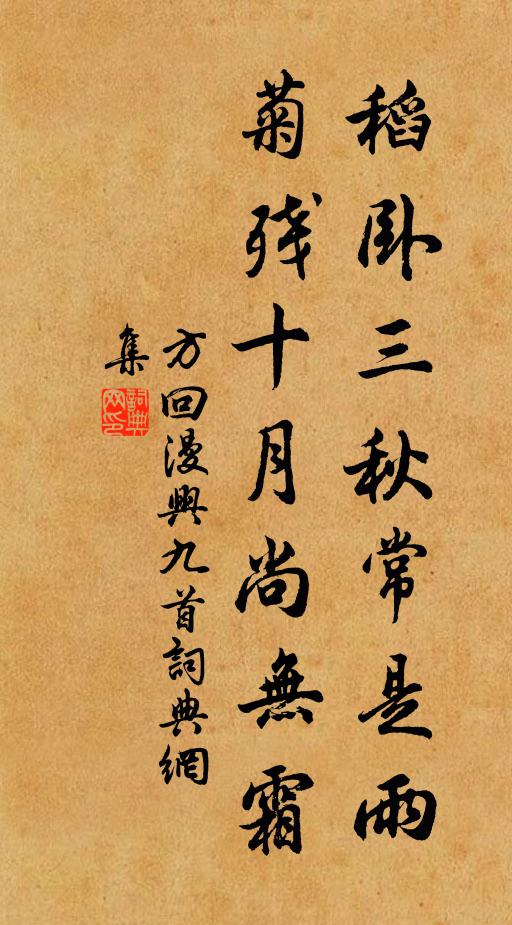 稻卧三秋常是雨
菊残十月尚無霜
方回漫興九首詞典網
集
詞典
网印